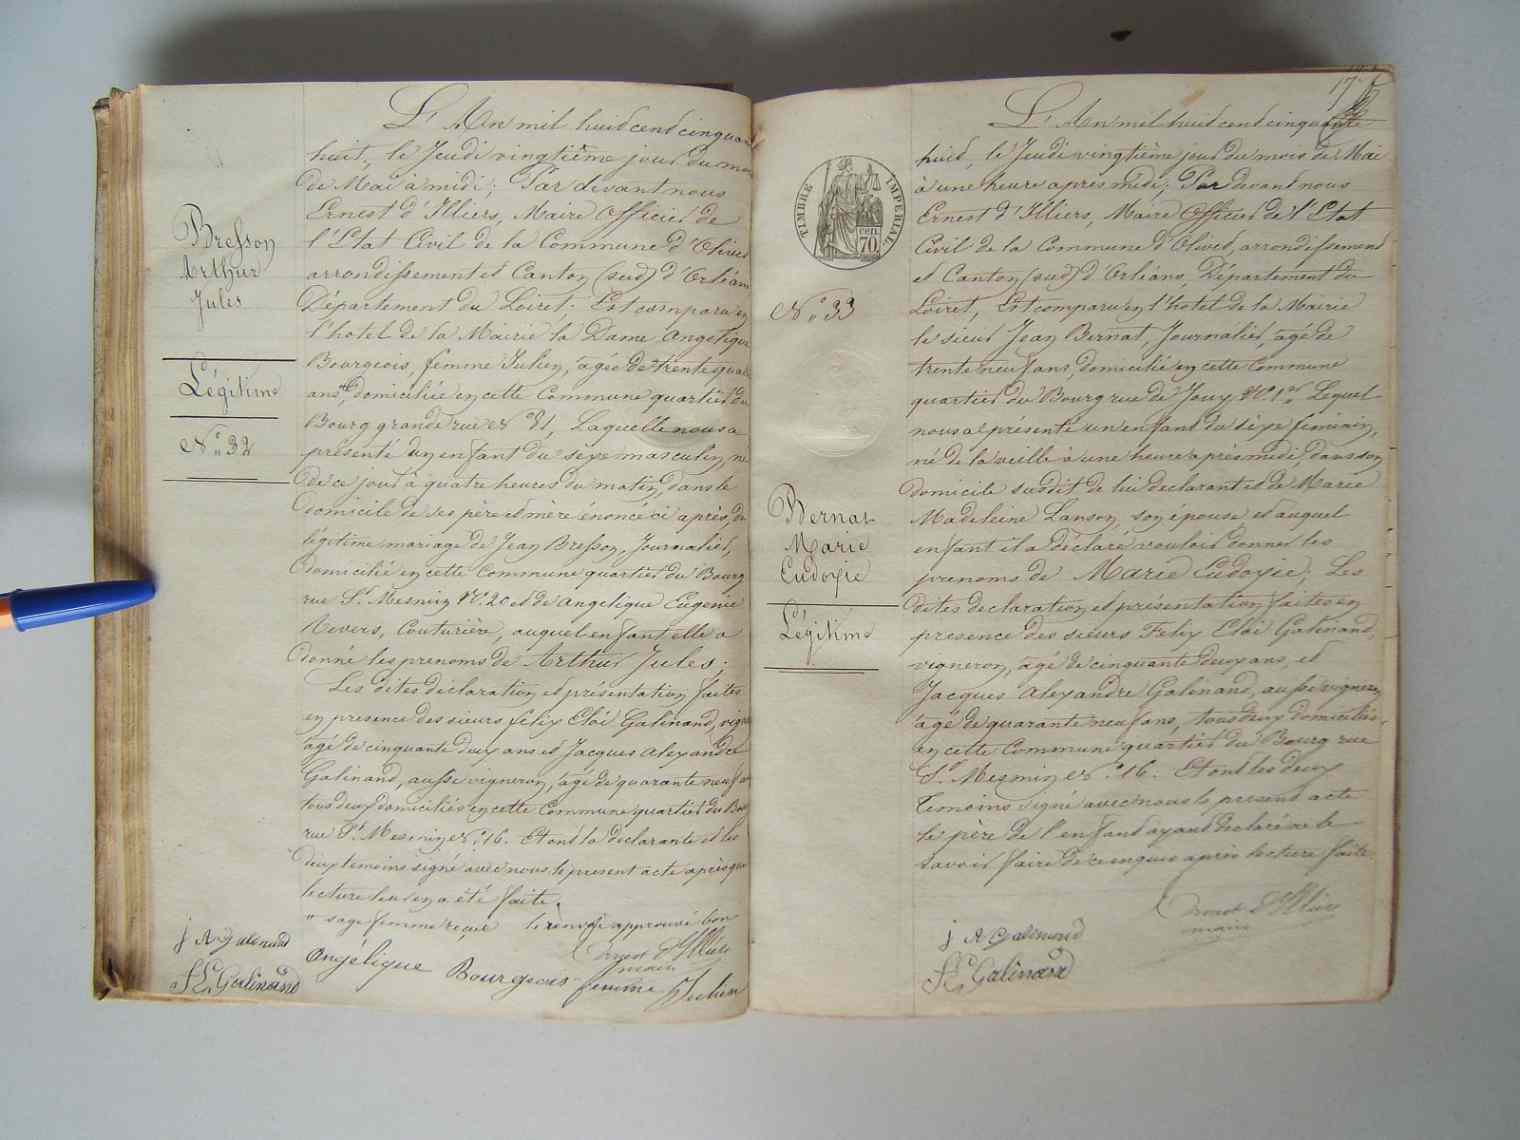 Bresson
Arthur
Jules
Légitime
No 32
L'An mil huit cent cinquan
huit, le Jeudi vingtième jour du mo
de Mai à midi; Par devant nous
Ernest d'Illiers, Maire Officier de
l'Etat Civil de la Commune d'Olivet
arrondissement et Canton (sud) d'Orléans
Département du Loiret; Est comparu en
l'hotel de la Mairie la Dame Angelique
Bourgeois, femme Julien, agée de trente quat
ans, domiciliée en cette Commune quartier du
Bourg grande rue No 31, Laquelle nous a
présenté un enfant du sexe masculin, né
de ce jour à quatre heures du matin, dans le
domicile de ses père et mère énoncé ci après, du
légitime mariage de Jean Bresson, Journalier,
domicilié en cette Commune quartier du Bourg
rue St Mesmin No 20 et de Angelique Eugenie
Nevers, Couturière, auquel enfant elle a
donné les prenoms de Arthur Jules;
Les dites déclaration et présentation faites
en presence des sieurs felix Eloi Galinand, vign
agé de cinquante deux ans et Jacques Alexandre
Galinand, aussi vigneron, agé de quarante neuf an
tous deux domiciliés en cette Commune quartier du Bou
rue St Mesmin No 16. Et ont la déclarante et les
deux temoins signé avec nous le present acte après que
lecture leur en a été faite.
" sage femme reçue le renvoi approuvé bon
j A Galinand
F E Galinand
Angélique Bourgeois femme Julien
Ernest d'Illiers
maire
17
TIMBRE IMPERIAL
70
No 33
Bernat
Marie
Eudoxie
Légitime
L'An mil huit cent cinquante
huit, le Jeudi vingtième jour du mois de Mai
à une heure après midi; Par devant nous
Ernest d'Illiers, Maire Officier de l'Etat
Civil de la Commune d'Olivet, arrondissement
et Canton (sud) d'Orléans, Département du
Loiret, Est comparu en l'hotel de la Mairie
le sieur Jean Bernat, Journalier, agé de
trente neuf ans, domicilié en cette Commune
quartier du Bourg rue de Jouy No 1er Lequel
nous a présenté un enfant du sexe féminin,
né de la veille à une heure après midi, dans son
domicile susdit de lui declarant et de Marie
Madeleine Lanson, son épouse, et auquel
enfant il a déclaré vouloir donner les
prenoms de Marie Eudoxie; Les
dites declaration et présentation faites en
presence des sieurs Felix Eloi Galinand,
vigneron, agé de cinquante deux ans, et
Jacques Alexandre Galinand, aussi vigneron,
agé de quarante neuf ans, tous deux domiciliés
en cette Commune quartier du Bourg rue
St Mesmin No 16. Et ont les deux
temoins signé avec nous le present acte
le père de l'enfant ayant declaré ne le
savoir faire de ce enquis après lecture faite
j A Galinand
F E Galinand
Ernest d'Illiers
maire